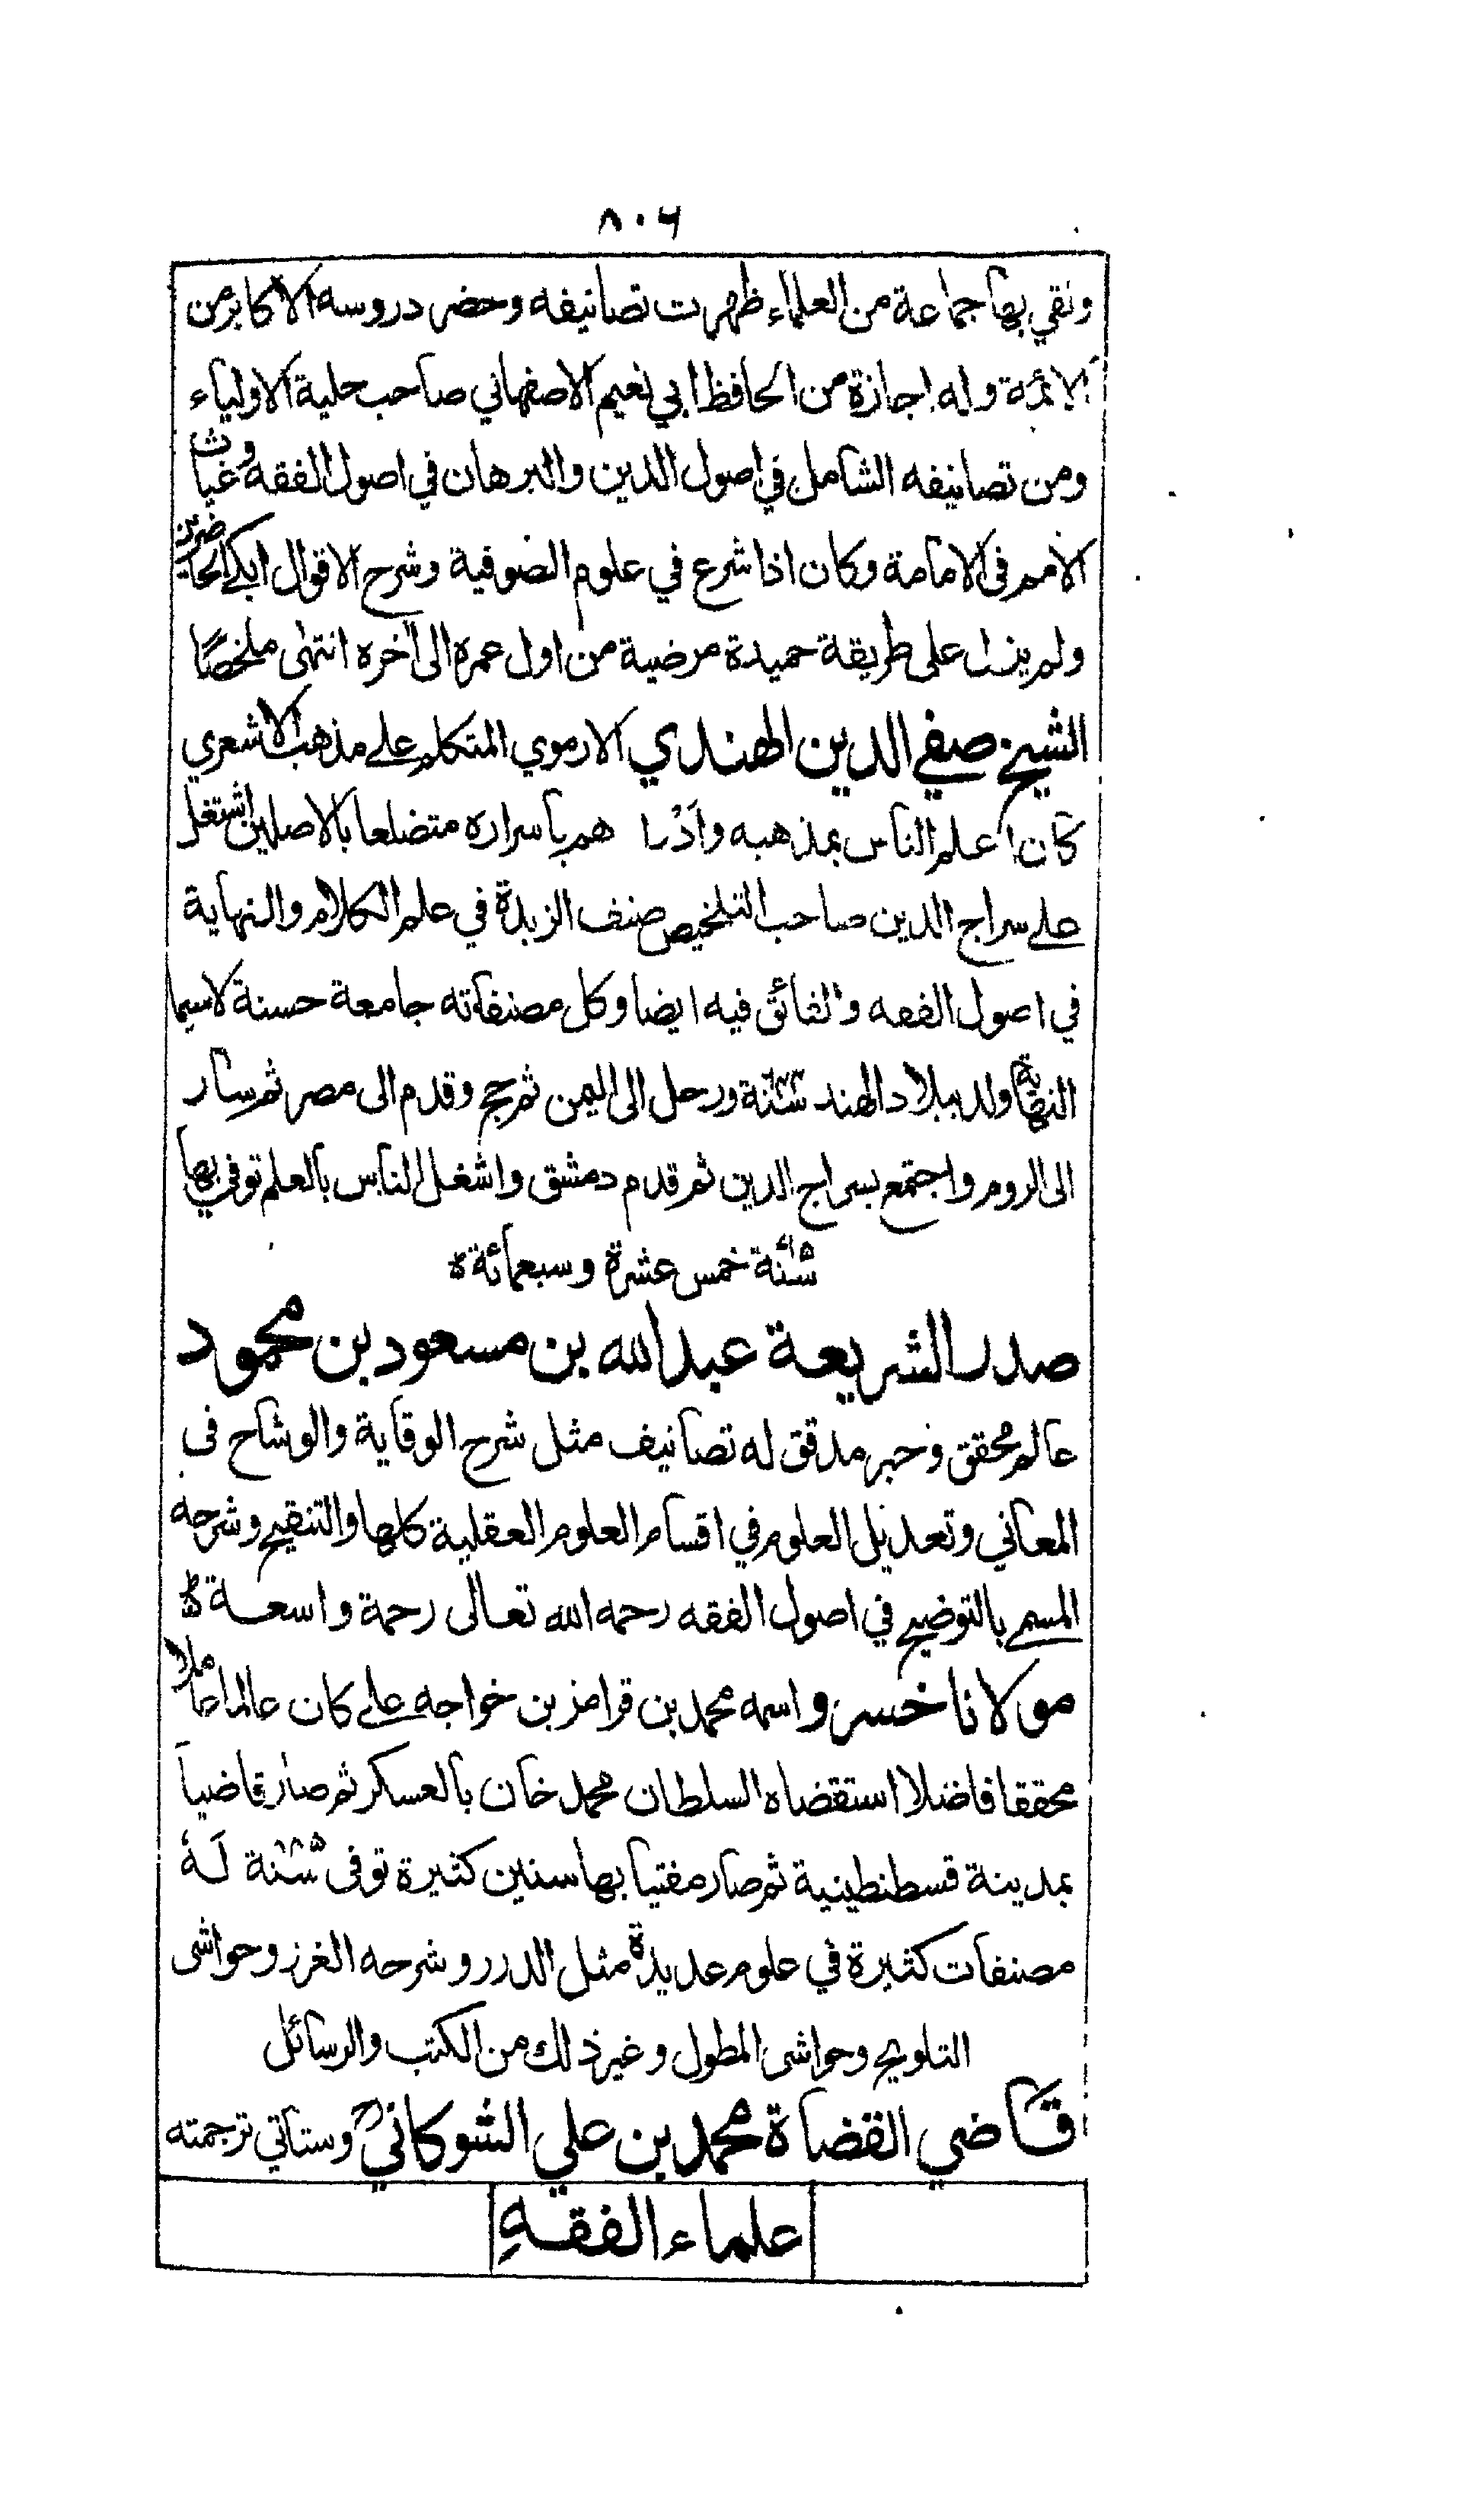 ٨٠٦
ولقي بها جماعة من العلماء ظهرت تصانيفه وحضر دروسه الاكابر من
الائمة وله اجازة من الحافظ ابي نعيم الاصفهاني صاحب حلية الاولياء
ومن تصانيفه الشامل في اصول الدين والبرهان في اصول الفقه وغياث
الامم فى الامامة وكان اذا شرع في علوم الصوفية وشرح الاقوال ابكے الحاضرين
ولم يزل على طريقة حميدة مرضية من اول عمره الى آخره انتهى ملخصًا
الشيخ صفي الدين الهندي الارموي المتكلم علے مذهب الاشعري
كان اعلم الناس بمذهبه وادراهم باسراره متضلعا بالاصلين اشتغل
علے سراج الدين صاحب التلخيص صنف الزبدة في علم الكلام والنهاية
في اصول الفقه والفائق فيه ايضا وكل مصنفاته جامعة حسنة لاسيما
النهاية ولد ببلاد الهند سنة ورحل الى اليمن ثم حج وقدم الى مصر ثم سار
الى الروم واجتمع بسراج الدين ثم قدم دمشق واشغل الناس بالعلم توفي بها
سنة خمس عشرة وسبعمائة
صدر الشريعة عبد الله بن مسعود بن محمود
عالم محقق وحبر مدقق له تصانيف مثل شرح الوقاية والوشاح فى
المعاني وتعديل العلوم في اقسام العلوم العقلية كلها والتنقيح وشرحه
المسمے بالتوضيح في اصول الفقه رحمه الله تعالى رحمة واسعة
مولانا خسرو واسمه محمد بن قرامز بن خواجه علے كان عالما عاملا
محققا فاضلا استقضاه السلطان محمد خان بالعسكر ثم صار قاضيا
بمدينة قسطنطينية ثم صار مفتيا بها سنين كثيرة توفى سنة لهٗ
مصنفات كثيرة في علوم عديدة مثل الدرر وشرحه الغرر وحواشى
التلويح وحواشى المطول وغير ذلك من الكتب والرسائل
قاضي القضاة محمد بن علي الشوكاني وستاتي ترجمته
علماء الفقهِ